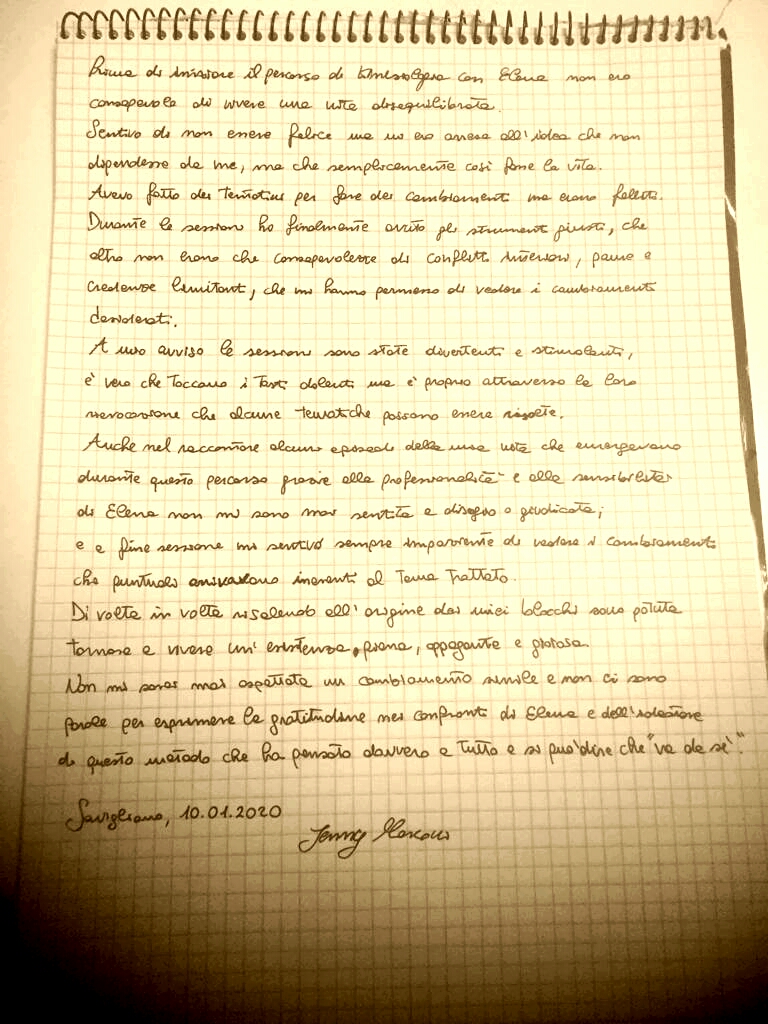 Prima di iniziare il percorso di kinesiologia con Elena non ero
consapevole di vivere una vita disequilibrata.
Sentivo di non essere felice ma mi ero arresa all'idea che non
dipendesse da me, ma che semplicemente così fosse la vita.
Avevo fatto dei tentativi per fare dei cambiamenti ma erano falliti.
Durante le sessioni ho finalmente avuto gli strumenti giusti, che
altro non erano che consapevolezze di conflitti interiori, paure e
credenze limitanti, che mi hanno permesso di vedere i cambiamenti
desiderati.
A mio avviso le sessioni sono state divertenti e stimolanti,
è vero che toccano i tasti dolenti ma è proprio attraverso la loro
rievocazione che alcune tematiche possono essere risolte.
Anche nel raccontare alcuni episodi della mia vita che emergevano
durante questo percorso grazie alla professionalità e alla sensibilità
di Elena non mi sono mai sentita a disagio o giudicata;
e a fine sessione mi sentivo sempre impaziente di vedere i cambiamenti
che puntuali arrivavano inerenti al tema trattato.
Di volta in volta risalendo all'origine dei miei blocchi sono potuta
tornare a vivere un'esistenza piena, appagante e gioiosa.
Non mi sarei mai aspettata un cambiamento simile e non ci sono
parole per esprimere la gratitudine nei confronti di Elena e dell'ideatore
di questo metodo che ha pensato davvero a tutto e si può dire che "va da sé".
Savigliano, 10.01.2020
Jenny